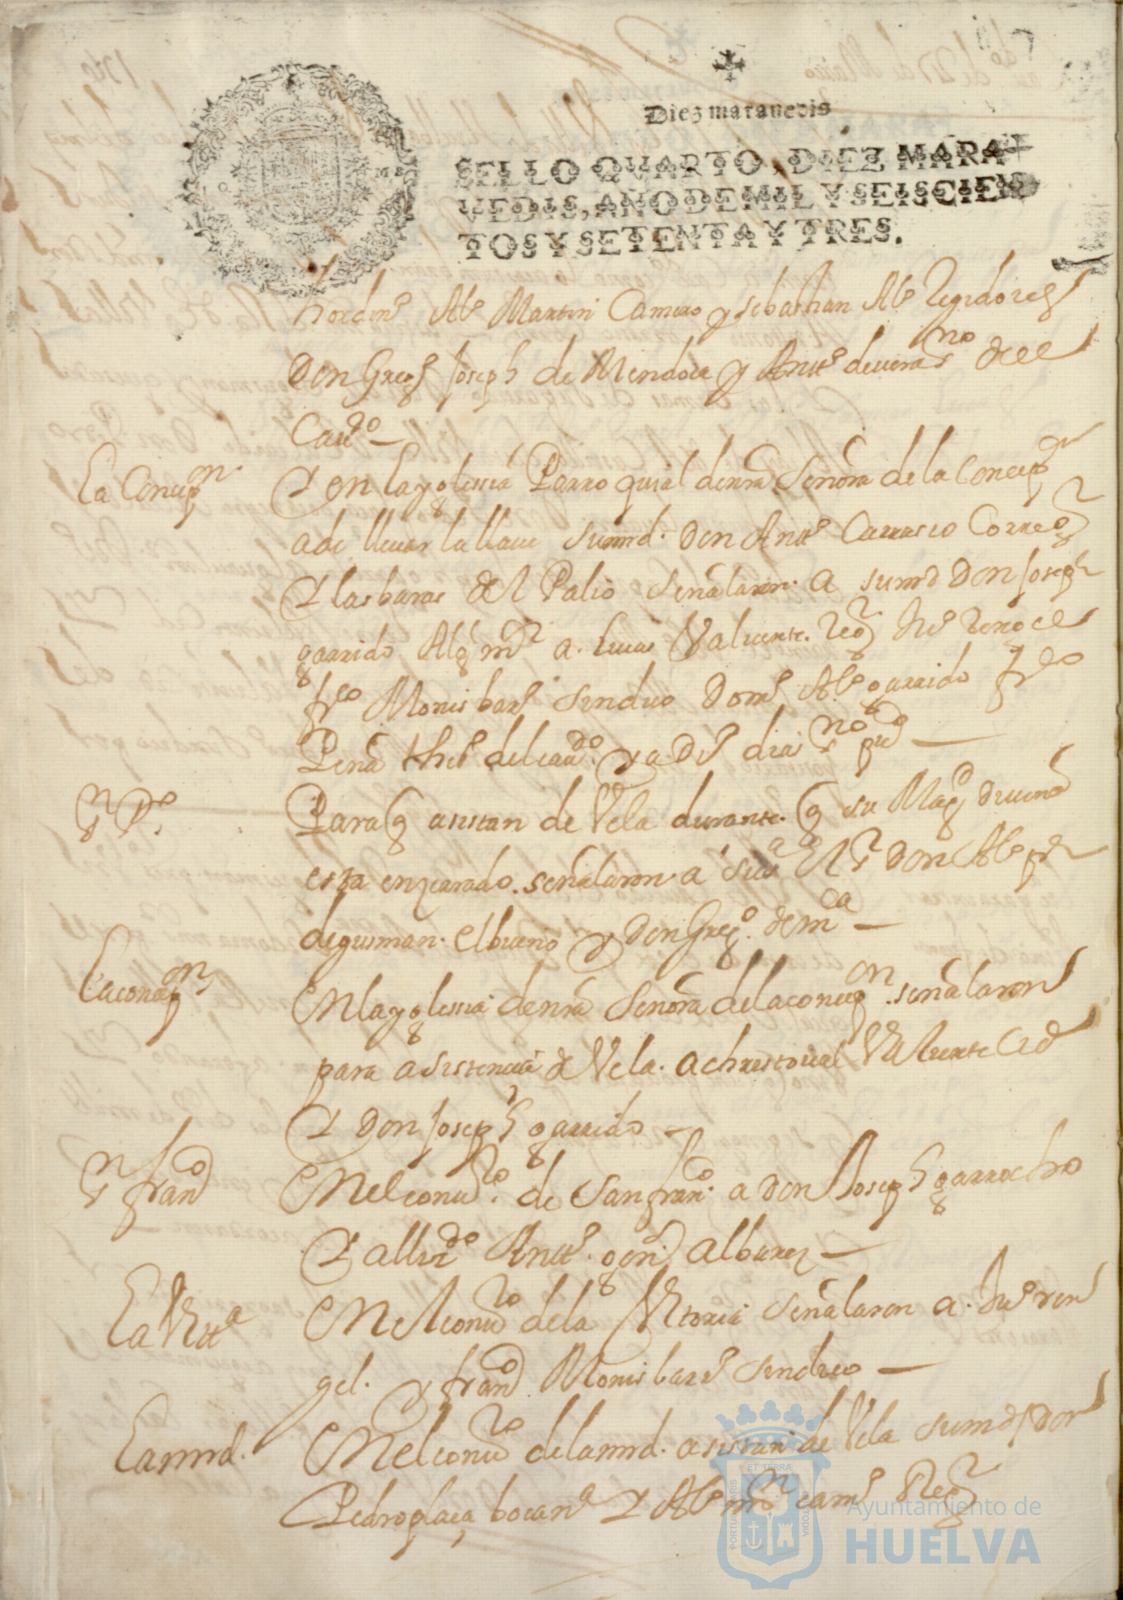 Diez maravedis
SELLO QVARTO, DIEZ MARA
VEDIS, AÑO DE MIL Y SEISCIEN
TOS Y SETENTA Y TRES.
Alº Martin Camero y sebastian Alº Regidores
Don Gregº Joseph de Mendoça y Anttº de vera ssno del
Cavdo
La Concepon
Y en la yglessia Parroquial de nra Señora de la Concepon
a de llevar la llave sumrd. Don Anttº Carrasco Correor
Y las baras del Palio señalaron a sumd Don Joseph
garrido Algl mor a Lucas Valiente Regor
franco Monis barº sindico Domº Alº garrido franco
Peña del cavdo y a
Sn Pº
Para q asistan de Vela durante q su Magd divina
esta enzerrado señalaron a Don Alº
de gusman el bueno y Don Gregº de mca
La concepon
En la yglessia de nra Señora de la concepon señalaron
para asistencia de Vela a christoual Valiente
Y Don Joseph garrido
Sn franco
En el convto de San franco a Don Joseph garrocho
Y al Anttº albarez
La Vitta
En el convto de la Vitoria señalaron a Juº ren
gel y franco Monis barº sindico
La mrd.
En el convto de la mrd. asistan de Vela sumd Don
Pedro plaça bocanª Y Alº mrn camº Regor
PORTUS MARIS
ET TERRÆ
CUSTODIA
Ayuntamiento de
HUELVA